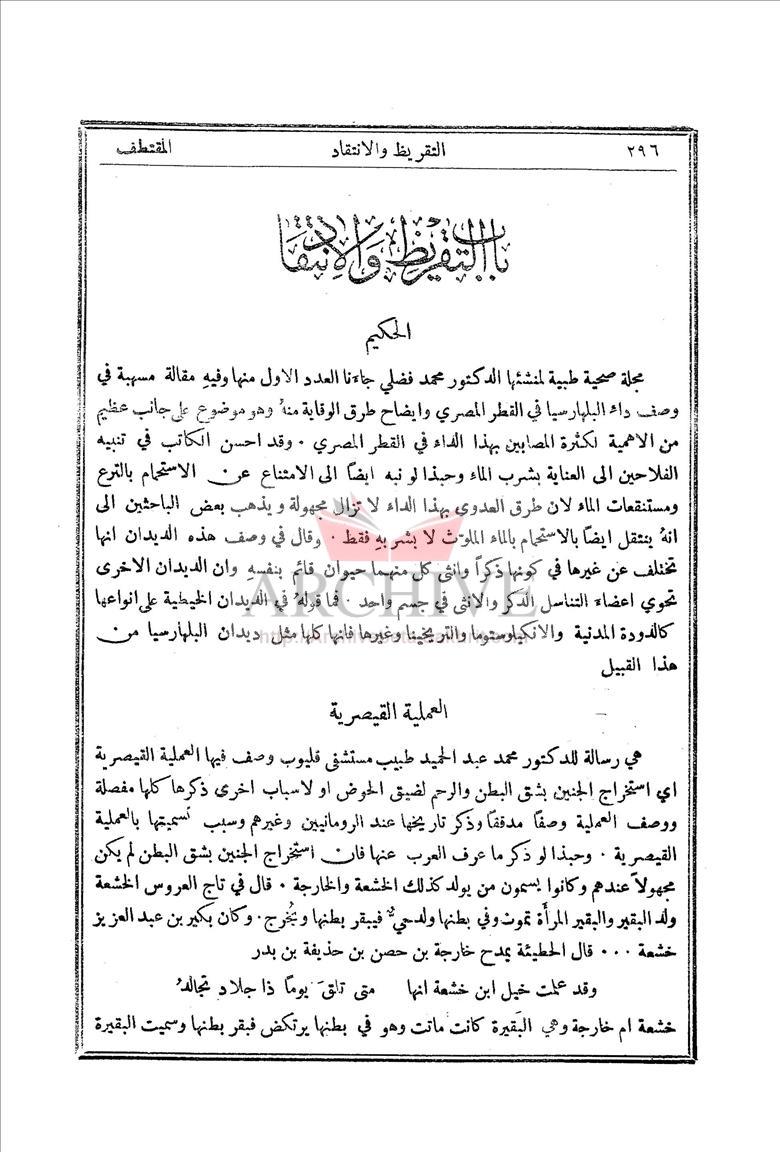 ٢٩٦ التقريظ والانتقاد المقتطف
باب التقريظ والانتقاد
الحكيم
مجلة صحية طبية لمنشئها الدكتور محمد فضلي جاءنا العدد الاول منها وفيهِ مقالة مسهبة في
وصف داء البلهارسيا في القطر المصري وايضاح طرق الوقاية منهُ وهو موضوع على جانب عظيم
من الاهمية لكثرة المصابين بهذا الداء في القطر المصري · وقد احسن الكاتب في تنبيه
الفلاحين الى العناية بشرب الماء وحبذا لو نبه ايضاً الى الامتناع عن الاستحمام بالترع
ومستنقعات الماء لان طرق العدوى بهذا الداء لا تزال مجهولة ويذهب بعض الباحثين الى
انهُ ينتقل ايضاً بالاستحمام بالماء الملوَّث لا بشربهِ فقط · وقال في وصف هذه الديدان انها
تختلف عن غيرها في كونها ذكراً وانثى كل منهما حيوان قائم بنفسهِ وان الديدان الاخرى
تحوي اعضاء التناسل الذكر والانثى في جسم واحد · فما قولهُ في الديدان الخيطية على انواعها
كالدودة المدنية والانكيلوستوما والتريخينا وغيرها فانها كلها مثل ديدان البلهارسيا من
هذا القبيل
ARCHIVE
العملية القيصرية
هي رسالة للدكتور محمد عبد الحميد طبيب مستشفى قليوب وصف فيها العملية القيصرية
اي استخراج الجنين بشق البطن والرحم لضيق الحوض او لاسباب اخرى ذكرها كلها مفصلة
ووصف العملية وصفاً مدققاً وذكر تاريخها عند الرومانيين وغيرهم وسبب تسميتها بالعملية
القيصرية · وحبذا لو ذكر ما عرف العرب عنها فان استخراج الجنين بشق البطن لم يكن
مجهولاً عندهم وكانوا يسمون من يولد كذلك الخشعة والخارجة · قال في تاج العروس الخشعة
ولد البقير والبقير المرأَة تموت وفي بطنها ولد حيٌّ فيبقر بطنها ويُخرج · وكان بكير بن عبد العزيز
خشعة ··· قال الحطيئة يمدح خارجة بن حصن بن حذيفة بن بدر
وقد علمت خيل ابن خشعة انها متى تلقَ يوماً ذا جلاد تجالدُ
خشعة ام خارجة وهي البَقيرة كانت ماتت وهو في بطنها يرتكض فبقر بطنها وسميت البقيرة